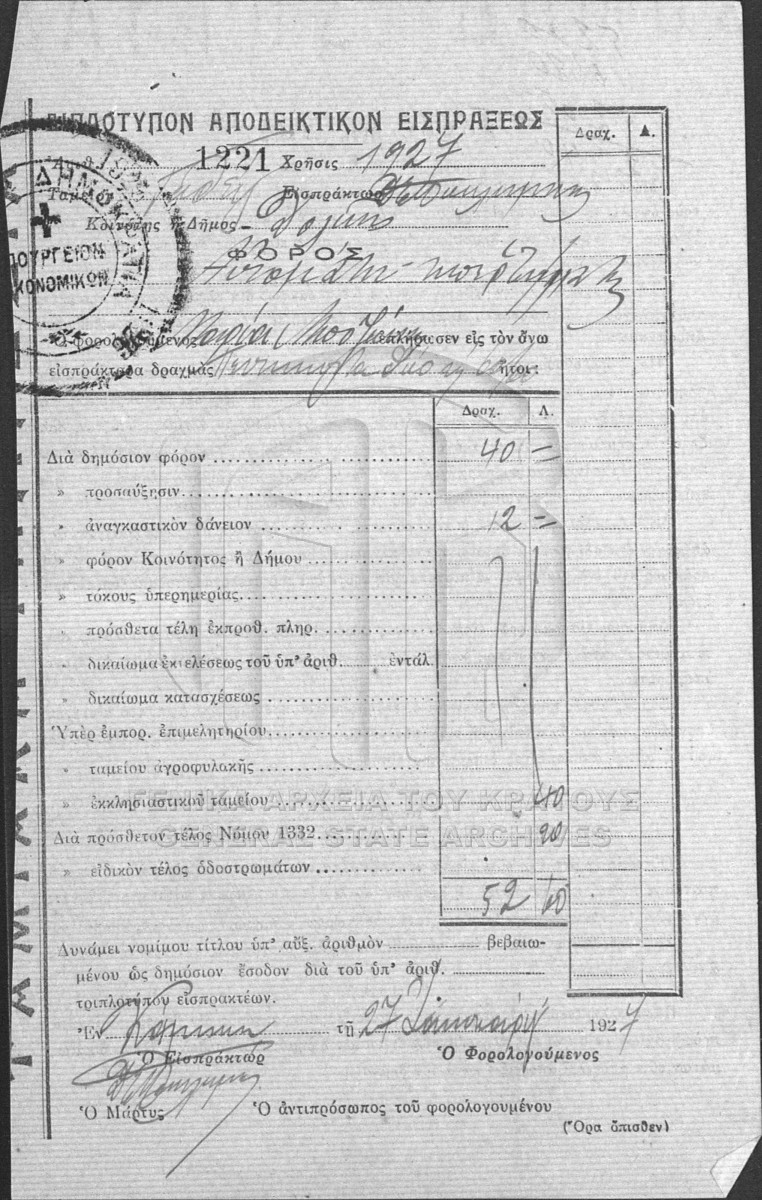 ΔΙΠΛΟΤΥΠΟΝ ΑΠΟΔΕΙΚΤΙΚΟΝ ΕΙΣΠΡΑΞΕΩΣ
1221 Χρῆσις 1927
Εἰσπράκτωρ
Κοινότης ἢ Δῆμος
ΦΟΡΟΣ
ΔΗΜΟΚΡΑΤΙΑ
ΥΠΟΥΡΓΕΙΟΝ
ΟΙΚΟΝΟΜΙΚΩΝ
Ὁ φορολογούμενος ἐπλήρωσεν εἰς τὸν ἄνω
εἰσπράκτορα δραχμὰς ἤτοι:
Δραχ. Λ.
Δραχ. Λ.
Διὰ δημόσιον φόρον 40 =
» προσαύξησιν
» ἀναγκαστικὸν δάνειον 12 =
» φόρον Κοινότητος ἢ Δήμου
» τόκους ὑπερημερίας
» πρόσθετα τέλη ἐκπροθ. πληρ.
» δικαίωμα ἐκτελέσεως τοῦ ὑπ' ἀριθ. ἐντάλ.
» δικαίωμα κατασχέσεως
Ὑπὲρ ἐμπορ. ἐπιμελητηρίου
» ταμείου ἀγροφυλακῆς
» ἐκκλησιαστικοῦ ταμείου 40
Διὰ πρόσθετον τέλος Νόμου 1332 20
» εἰδικὸν τέλος ὁδοστρωμάτων
52 60
ΓΕΝΙΚΑ ΑΡΧΕΙΑ ΤΟΥ ΚΡΑΤΟΥΣ
GENERAL STATE ARCHIVES
Δυνάμει νομίμου τίτλου ὑπ' αὔξ. ἀριθμὸν βεβαιω-
μένου ὡς δημόσιον ἔσοδον διὰ τοῦ ὑπ' ἀριθ.
τριπλοτύπου εἰσπρακτέων.
Ἐν τῇ 27 Ἰανουαρίου 1927
Ὁ Εἰσπράκτωρ Ὁ Φορολογούμενος
Ὁ Μάρτυς Ὁ ἀντιπρόσωπος τοῦ φορολογουμένου
(Ὅρα ὄπισθεν)